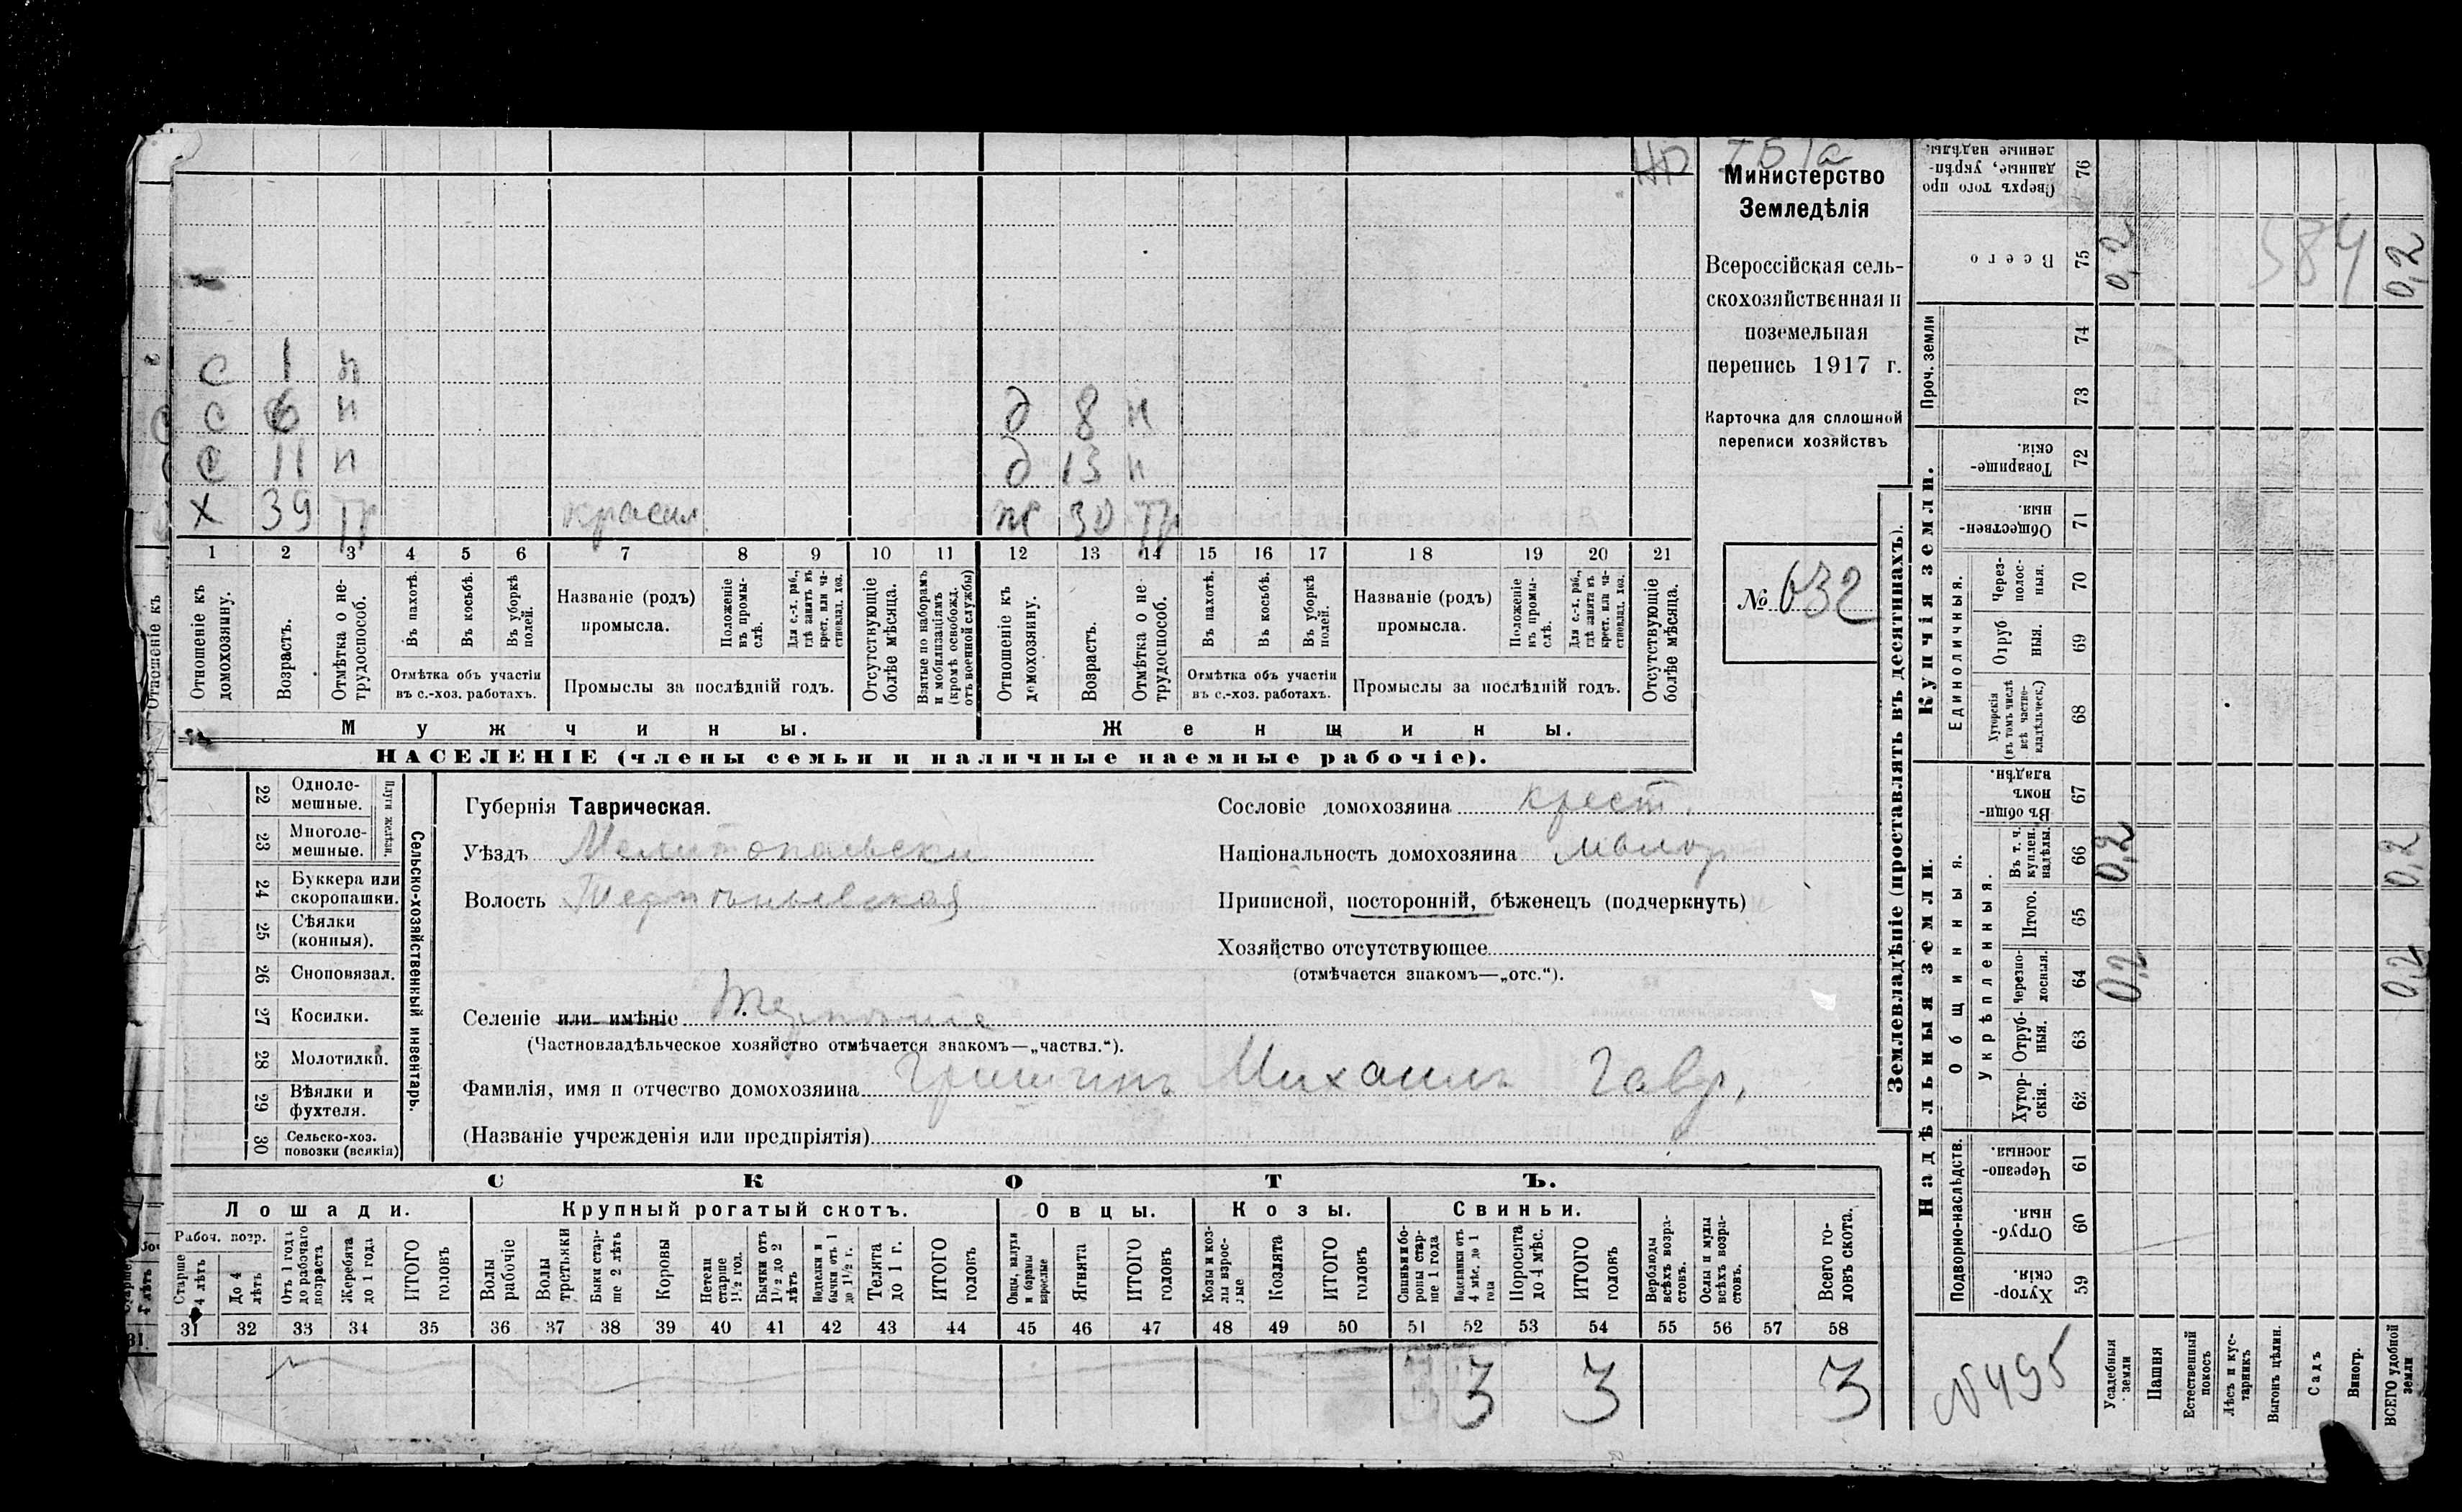 Министерство
Земледѣлія
Всероссійская сель-
скохозяйственная и
поземельная
перепись 1917 г.
Карточка для сплошной
переписи хозяйствъ
№ 632
с 1 н
с 6 н д 8 н
с 11 н д 13 н
х 39 тр красил. ж 30 тр
1 2 3 4 5 6 7 8 9 10 11 12 13 14 15 16 17 18 19 20 21
Отношеніе къ домохозяину.
Возрастъ.
Отмѣтка о не-трудоспособ.
Въ пахотѣ.
Въ косьбѣ.
Въ уборкѣ полей.
Отмѣтка объ участіи
въ с.-хоз. работахъ.
Названіе (родъ)
промысла.
Положеніе въ промы-слѣ.
Для с.-х. раб., гдѣ занятъ въ крест. или ча-стновлад. хоз.
Промыслы за послѣдній годъ.
Отсутствующіе болѣе мѣсяца.
Взятые по наборамъ и мобилизаціямъ (кромѣ освобожд. отъ военной службы)
Отношеніе къ домохозяину.
Возрастъ.
Отмѣтка о не-трудоспособ.
Въ пахотѣ.
Въ косьбѣ.
Въ уборкѣ полей.
Отмѣтка объ участіи
въ с.-хоз. работахъ.
Названіе (родъ)
промысла.
Положеніе въ промы-слѣ.
Для с.-х. раб., гдѣ занятъ въ крест. или ча-стновлад. хоз.
Промыслы за послѣдній годъ.
Отсутствующіе болѣе мѣсяца.
Мужчины. Женщины.
НАСЕЛЕНІЕ (члены семьи и наличные наемные рабочіе).
Сельско-хозяйственный инвентарь.
Плуги желѣзн.
22 Одноле-мешные.
23 Многоле-мешные.
24 Буккера или скоропашки.
25 Сѣялки (конныя).
26 Сноповязал.
27 Косилки.
28 Молотилки.
29 Вѣялки и фухтеля.
30 Сельско-хоз. повозки (всякія)
Губернія Таврическая.
Уѣздъ Мелитопольски
Волость Терпѣньевская
Селеніе или имѣніе Терпѣніе
(Частновладѣльческое хозяйство отмѣчается знакомъ—„частвл.“).
Фамилія, имя и отчество домохозяина Гришинъ Михаилъ Гавр.
(Названіе учрежденія или предпріятія)
Сословіе домохозяина крест.
Національность домохозяина малор
Приписной, посторонній, бѣженецъ (подчеркнуть)
Хозяйство отсутствующее
(отмѣчается знакомъ—„отс.“).
СКОТЪ.
Лошади. Крупный рогатый скотъ. Овцы. Козы. Свиньи.
Рабоч. возр.
Старше 4 лѣтъ
До 4 лѣтъ
Отъ 1 года до рабочаго возраста
Жеребята до 1 года
ИТОГО головъ
Волы рабочіе
Волы третьяки
Быки стар-ше 2 лѣтъ
Коровы
Нетели старше 1½ год.
Бычки отъ 1½ до 2 лѣтъ
Подтелки и бычки отъ 1 до 1½ г.
Телята до 1 г.
ИТОГО головъ
Овцы, валухи и бараны взрослые
Ягнята
ИТОГО головъ
Козы и коз-лы взрос-лые
Козлята
ИТОГО головъ
Свиньи и бо-ровы стар-ше 1 года
Подсвинки отъ 4 мѣс. до 1 года
Поросята до 4 мѣс.
ИТОГО головъ
Верблюды всѣхъ возра-стовъ.
Ослы и мулы всѣхъ возра-стовъ.
Всего го-ловъ скота.
31 32 33 34 35 36 37 38 39 40 41 42 43 44 45 46 47 48 49 50 51 52 53 54 55 56 57 58
3 3 3
Землевладѣніе (проставлять въ десятинахъ).
Надѣльныя земли. Купчія земли.
Подворно-наслѣдств.
Общинныя.
Укрѣпленныя.
Единоличныя.
Проч. земли
Хутор-скія. 59
Отруб-ныя. 60
Черезпо-лосныя. 61
Хутор-скія. 62
Отруб-ныя. 63
Черезпо-лосныя. 64 0,2 0,2
Итого. 65
Въ т. ч. куплен. надѣлы. 66 0,2 0,2
Въ общи-номъ владѣн. 67
Хуторскія (въ томъ числѣ всѣ частно-владѣльческ.) 68
Отруб ныя. 69
Через-полос-ныя. 70
Обществен-ныя. 71
Товарище-скія. 72
73
74
Всего 75 0,2 0,2
Сверхъ того про данные, укрѣп-ленные надѣлы. 76
584
N 495
Усадебныя земли
Пашня
Естественный покосъ
Лѣсъ и кус-тарникъ
Выгонъ цѣлин.
Садъ
Виногр.
ВСЕГО удобной земли